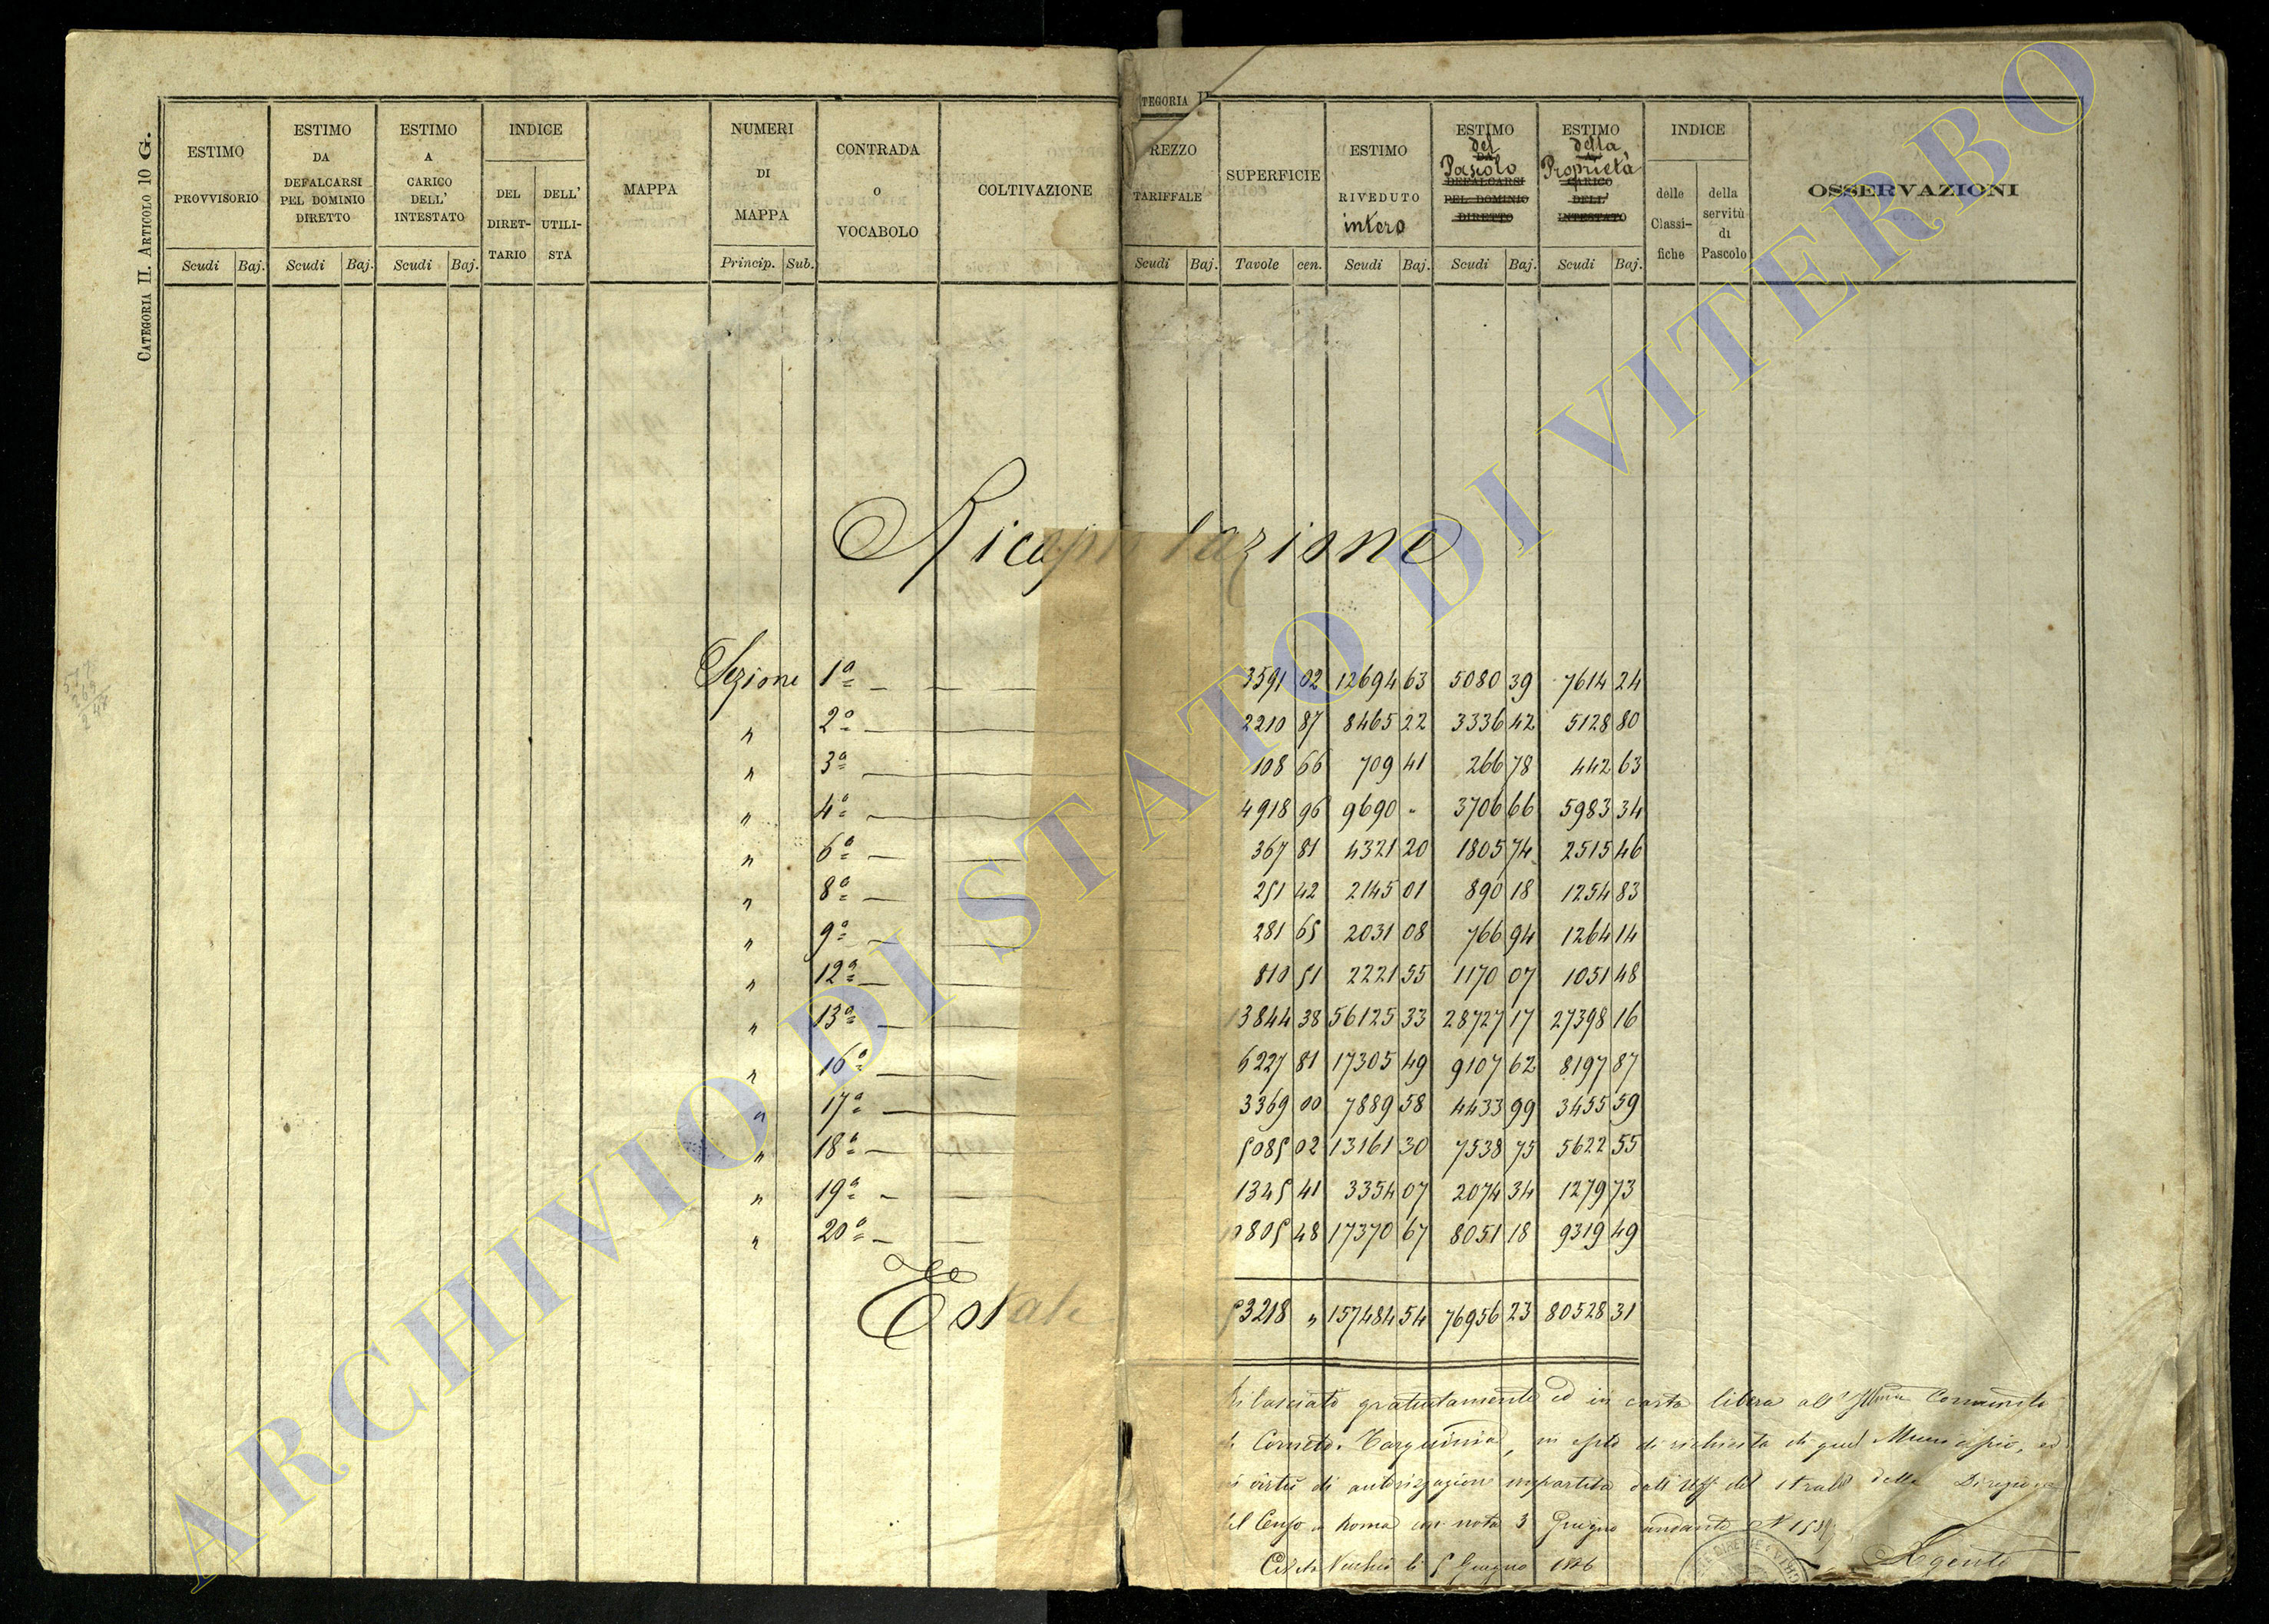 CATEGORIA II. ARTICOLO 10 G.
ESTIMO PROVVISORIO
Scudi Baj.
ESTIMO DA DEFALCARSI PEL DOMINIO DIRETTO
Scudi Baj.
ESTIMO A CARICO DELL' INTESTATO
Scudi Baj.
INDICE
DEL DIRET-TARIO
DELL' UTILI-STA
MAPPA
NUMERI DI MAPPA
Princip. Sub.
CONTRADA O VOCABOLO
COLTIVAZIONE
TEGORIA II
REZZO TARIFFALE
Scudi Baj.
SUPERFICIE
Tavole cen.
ESTIMO RIVEDUTO intero
Scudi Baj.
ESTIMO del Pascolo
DA DEFALCARSI PEL DOMINIO DIRETTO
Scudi Baj.
ESTIMO della Proprietà
A CARICO DELL' INTESTATO
Scudi Baj.
INDICE
delle Classi-fiche
della servitù di Pascolo
OSSERVAZIONI
Ricapitolazione
Sezione 1ª 3591 02 12694 63 5080 39 7614 24
" 2ª 2210 87 8465 22 3336 42 5128 80
" 3ª 108 66 709 41 266 78 442 63
" 4ª 4918 96 9690 " 3706 66 5983 34
" 6ª 367 81 4321 20 1805 74 2515 46
" 8ª 251 42 2145 01 890 18 1254 83
" 9ª 281 65 2031 08 766 94 1264 14
" 12ª 810 51 2221 55 1170 07 1051 48
" 13ª 13844 38 56125 33 28727 17 27398 16
" 16ª 6227 81 17305 49 9107 62 8197 87
" 17ª 3369 00 7889 58 4433 99 3455 59
" 18ª 5085 02 13161 30 7538 75 5622 55
" 19ª 1345 41 3354 07 2074 34 1279 73
" 20ª 10805 48 17370 67 8051 18 9319 49
53218 " 157484 54 76956 23 80528 31
Rilasciato gratuitamente ed in carta libera all' Comunità
di Corneto-Tarquinia, in di richiesta di quel Municipio, ed
in virtù di autorizzazione impartita dall' Uff. del stralcio della Direzione
del Censo a Roma con nota 3 Giugno andante N
Civita Vecchia li 5 Giugno
Agente
ARCHIVIO DI STATO DI VITERBO